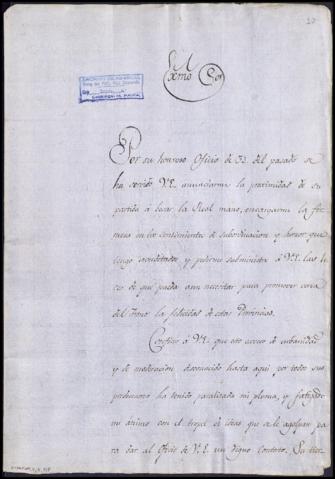 20
Exmo Sor
Por su honroso Oficio de 31 del pasado se
ha servido V.E. anunciarme la proximidad de su
partida á besar la Real mano, encargarme la fir-
meza en los sentimientos de subordinacion y honor que
tengo acreditados y pedirme subministre á V.E. las lu-
ces de que pueda aun necesitar para promover cerca
del trono la felicidad de estas Provincias.
Confieso á V.E. que este acceso de urbanidad
y de moderacion, desconocido hasta aqui por todos sus
predecesores ha tenido paralizada mi pluma, y fatigado
mi animo con el tropel de ideas que se le agolpan pa
ra dar al Oficio de V.E. un digno contexto.